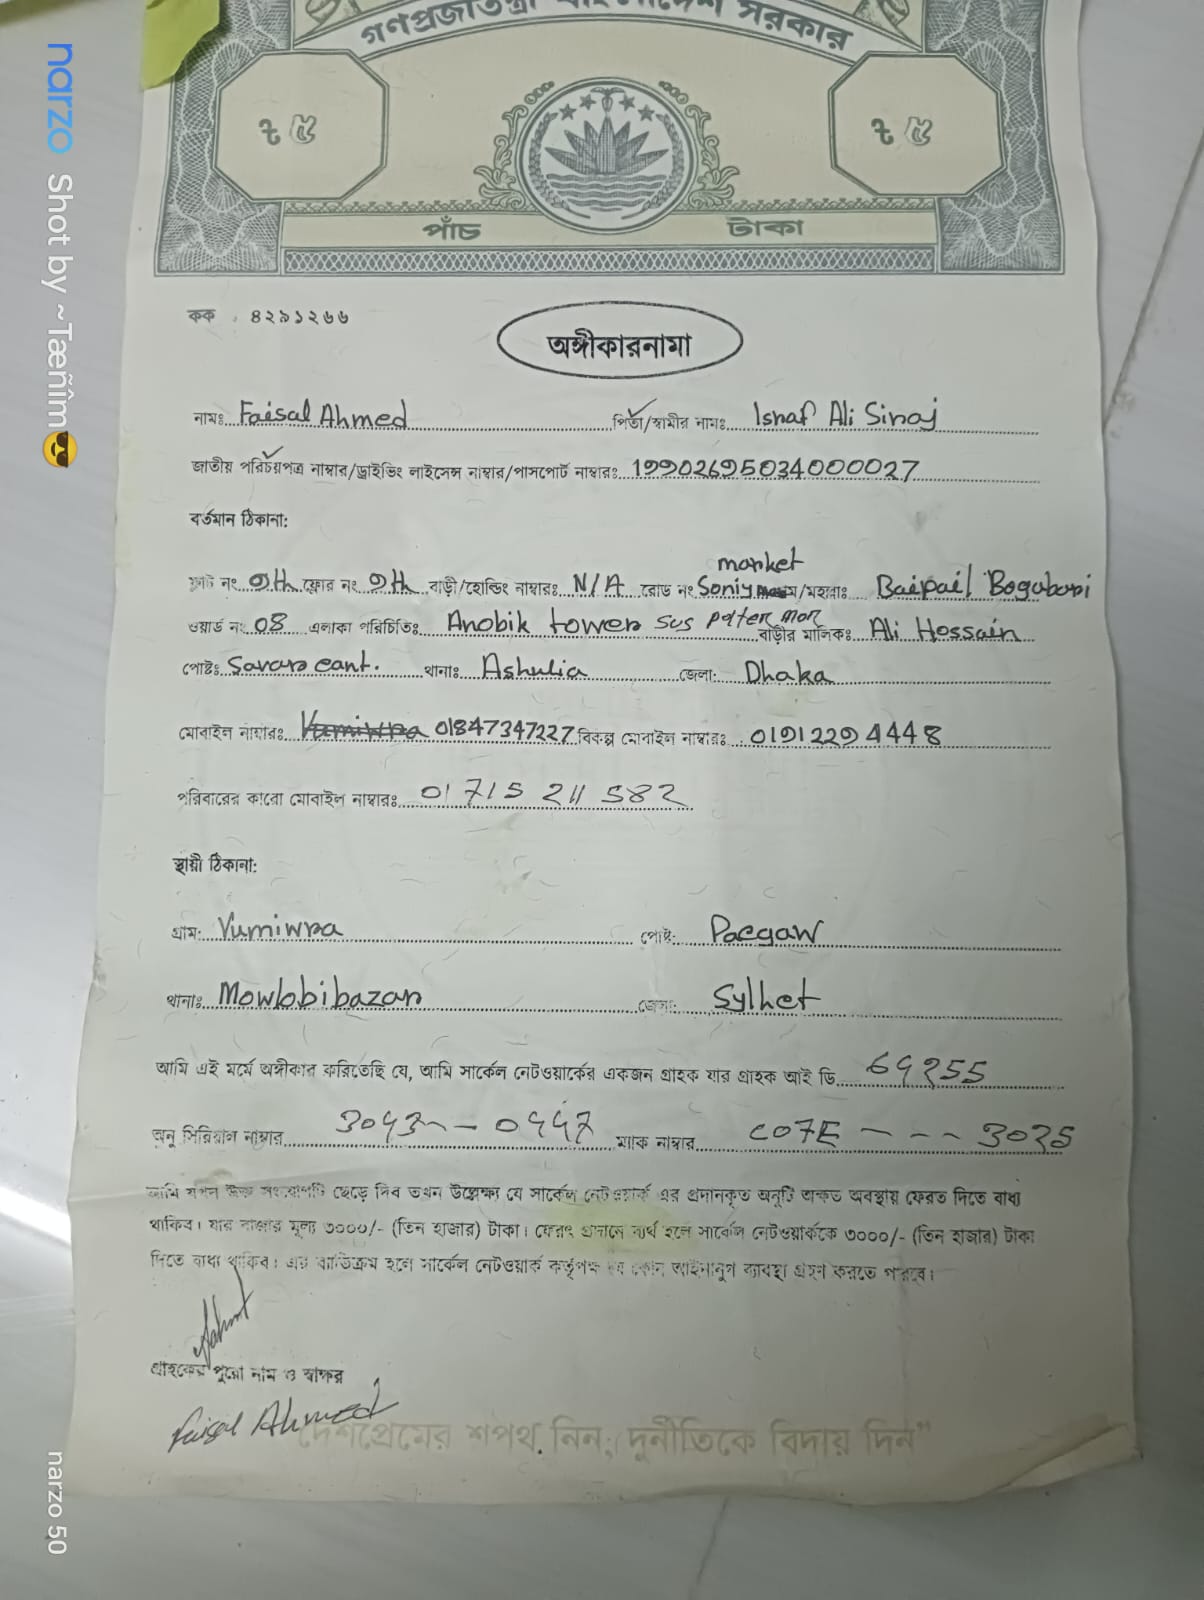 গণপ্রজাতন্ত্রী বাংলাদেশ সরকার
৳ ৫ ৳ ৫
পাঁচ টাকা
কক ৪২৯১২৬৬
অঙ্গীকারনামা
নামঃ Faisal Ahmed পিতা/স্বামীর নামঃ Israf Ali Siraj
জাতীয় পরিচয়পত্র নাম্বার/ড্রাইভিং লাইসেন্স নাম্বার/পাসপোর্ট নাম্বারঃ 19902695034000027
বর্তমান ঠিকানা:
market
ফ্লাট নং 9th ফ্লোর নং 9th বাড়ী/হোল্ডিং নাম্বারঃ N/A রোড নং Soniya /মহল্লাঃ Baipail Bogabari
ওয়ার্ড নং 08 এলাকা পরিচিতিঃ Anobik tower sus pater mor বাড়ীর মালিকঃ Ali Hossain
পোষ্টঃ Savar cant. থানাঃ Ashulia জেলা: Dhaka
মোবাইল নাম্বারঃ 01847347227 বিকল্প মোবাইল নাম্বারঃ 01912294448
পরিবারের কারো মোবাইল নাম্বারঃ 01715 211 582
স্থায়ী ঠিকানা:
গ্রাম: Vumiwra পোষ্ট: Paegaw
থানাঃ Mowlobibazar জেলা: Sylhet
আমি এই মর্মে অঙ্গীকার করিতেছি যে, আমি সার্কেল নেটওয়ার্কের একজন গ্রাহক যার গ্রাহক আই ডি
অনু সিরিয়াল নাম্বার ম্যাক নাম্বার C07E --- 3025
আমি যখন উক্ত সংযোগটি ছেড়ে দিব তখন উল্লেক্ষ্য যে সার্কেল নেটওয়ার্ক এর প্রদানকৃত অনুটি অক্ষত অবস্থায় ফেরত দিতে বাধ্য
থাকিব। যার বাজার মূল্য ৩০০০/- (তিন হাজার) টাকা। ফেরৎ প্রদানে ব্যর্থ হলে সার্কেল নেটওয়ার্ককে ৩০০০/- (তিন হাজার) টাকা
দিতে বাধ্য থাকিব। এর ব্যতিক্রম হলে সার্কেল নেটওয়ার্ক কর্তৃপক্ষ যে কোন আইনানুগ ব্যবস্থা গ্রহণ করতে পারবে।
গ্রাহকের পুরো নাম ও স্বাক্ষর
Faisal Ahmed
দেশপ্রেমের শপথ নিন, দুর্নীতিকে বিদায় দিন"
narzo Shot by ~Tæñîm😎
narzo 50